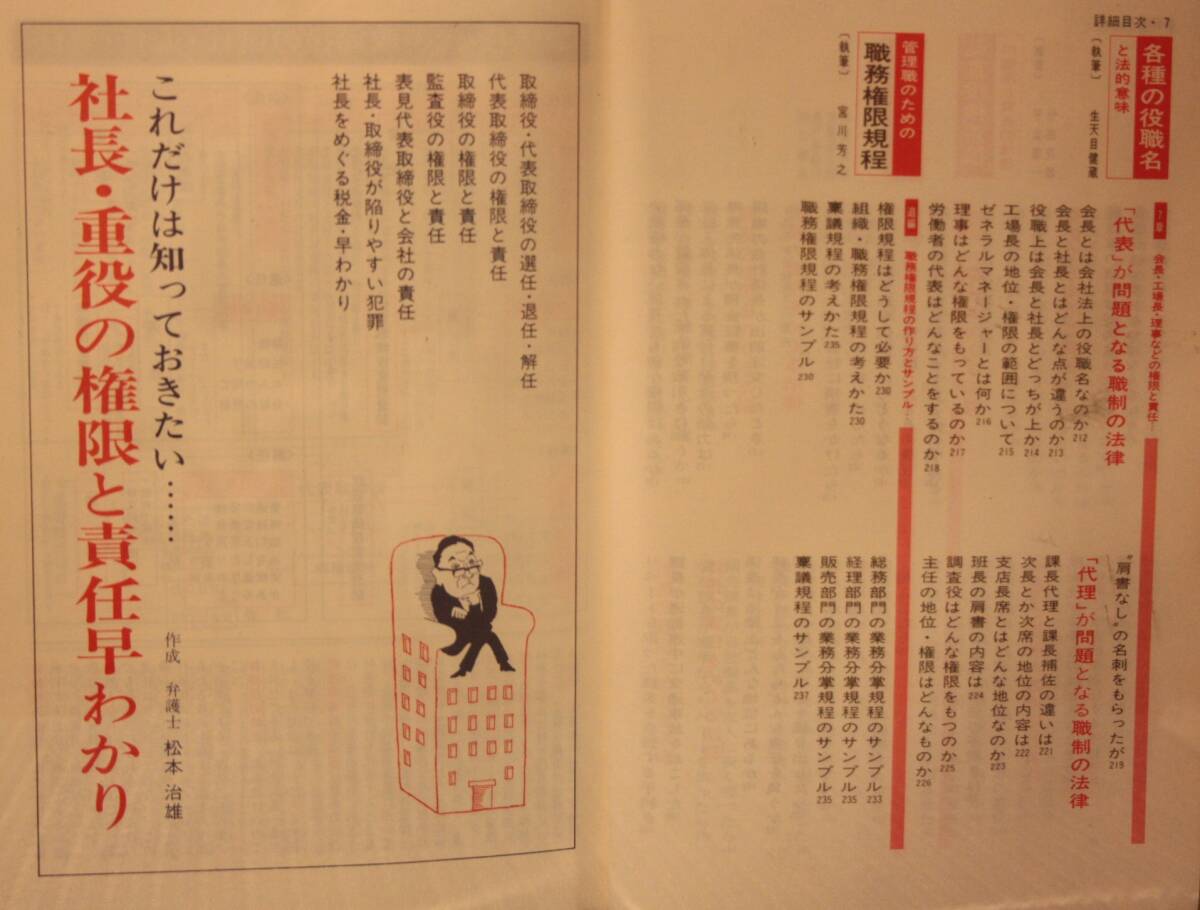 詳細目次・7
各種の役職名
と法的意味
〔執筆〕 生天目健蔵
7章 会長・工場長・理事などの権限と責任…
「代表」が問題となる職制の法律
会長とは会社法上の役職名なのか212
会長と社長とはどんな点が違うのか213
役職上は会長と社長とどっちが上か214
工場長の地位・権限の範囲について215
ゼネラルマネージャーとは何か216
理事はどんな権限をもっているのか217
労働者の代表はどんなことをするのか218
〝肩書なし〟の名刺をもらったが219
「代理」が問題となる職制の法律
課長代理と課長補佐の違いは221
次長とか次席の地位の内容は222
支店長席とはどんな地位なのか223
班長の肩書の内容は224
調査役はどんな権限をもつのか225
主任の地位・権限はどんなものか226
管理職のための
職務権限規程
〔執筆〕 宮川芳之
追編 職務権限規程の作り方とサンプル…
権限規程はどうして必要か230
組織・職務権限規程の考えかた230
稟議規程の考えかた235
職務権限規程のサンプル230
総務部門の業務分掌規程のサンプル233
経理部門の業務分掌規程のサンプル235
販売部門の業務分掌規程のサンプル235
稟議規程のサンプル237
取締役・代表取締役の選任・退任・解任
代表取締役の権限と責任
取締役の権限と責任
監査役の権限と責任
表見代表取締役と会社の責任
社長・取締役が陥りやすい犯罪
社長をめぐる税金・早わかり
これだけは知っておきたい……
社長・重役の権限と責任早わかり
作成 弁護士 松本治雄